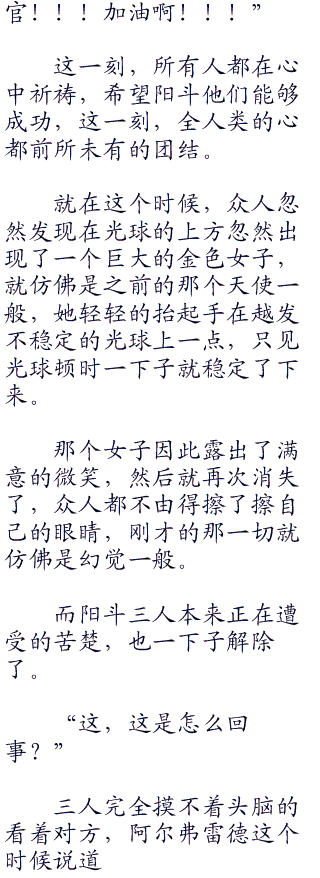 官！！！加油啊！！！”
这一刻，所有人都在心
中祈祷，希望阳斗他们能够
成功，这一刻，全人类的心
都前所未有的团结。
就在这个时候，众人忽
然发现在光球的上方忽然出
现了一个巨大的金色女子，
就仿佛是之前的那个天使一
般，她轻轻的抬起手在越发
不稳定的光球上一点，只见
光球顿时一下子就稳定了下
来。
那个女子因此露出了满
意的微笑，然后就再次消失
了，众人都不由得擦了擦自
己的眼睛，刚才的那一切就
仿佛是幻觉一般。
而阳斗三人本来正在遭
受的苦楚，也一下子解除
了。
“这，这是怎么回
事？”
三人完全摸不着头脑的
看着对方，阿尔弗雷德这个
时候说道